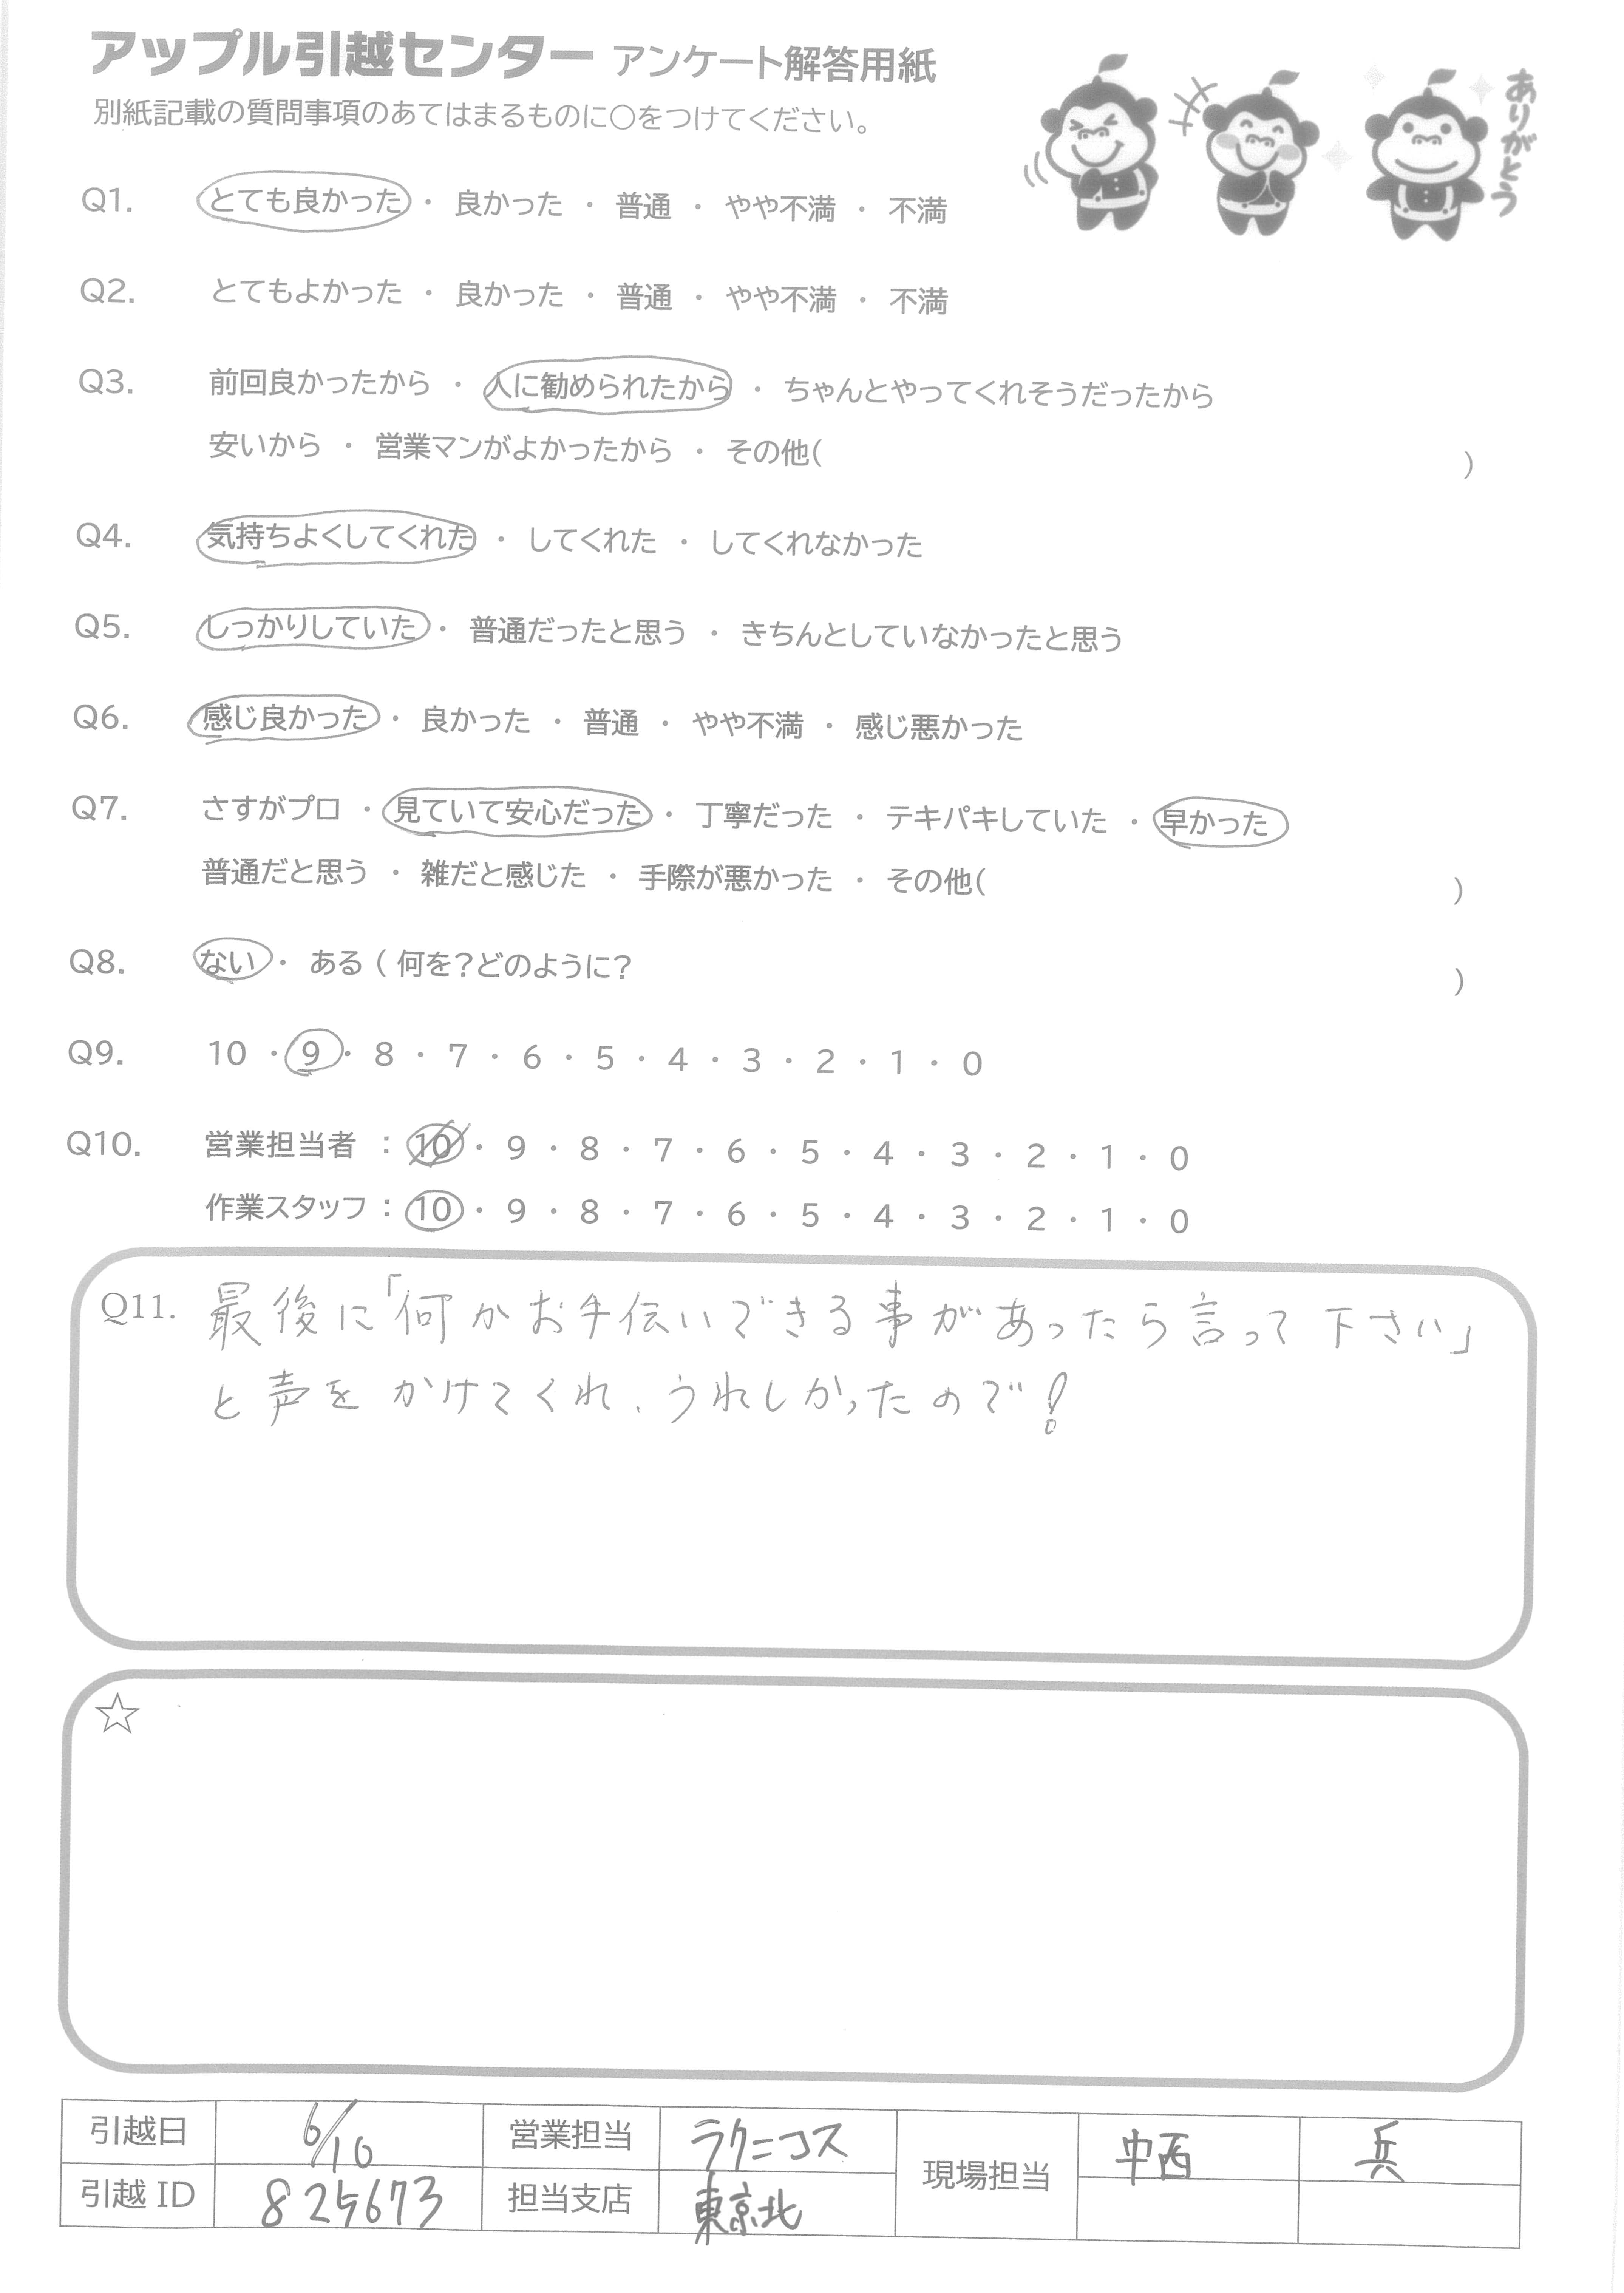 アップル引越センター アンケート解答用紙
別紙記載の質問事項のあてはまるものに○をつけてください。
ありがとう
Q1. とても良かった ・ 良かった ・ 普通 ・ やや不満 ・ 不満
Q2. とてもよかった ・ 良かった ・ 普通 ・ やや不満 ・ 不満
Q3. 前回良かったから ・ 人に勧められたから ・ ちゃんとやってくれそうだったから
安いから ・ 営業マンがよかったから ・ その他( )
Q4. 気持ちよくしてくれた ・ してくれた ・ してくれなかった
Q5. しっかりしていた ・ 普通だったと思う ・ きちんとしていなかったと思う
Q6. 感じ良かった ・ 良かった ・ 普通 ・ やや不満 ・ 感じ悪かった
Q7. さすがプロ ・ 見ていて安心だった ・ 丁寧だった ・ テキパキしていた ・ 早かった
普通だと思う ・ 雑だと感じた ・ 手際が悪かった ・ その他( )
Q8. ない ・ ある ( 何を?どのように? )
Q9. 10 ・ 9 ・ 8 ・ 7 ・ 6 ・ 5 ・ 4 ・ 3 ・ 2 ・ 1 ・ 0
Q10. 営業担当者 : 10 ・ 9 ・ 8 ・ 7 ・ 6 ・ 5 ・ 4 ・ 3 ・ 2 ・ 1 ・ 0
作業スタッフ : 10 ・ 9 ・ 8 ・ 7 ・ 6 ・ 5 ・ 4 ・ 3 ・ 2 ・ 1 ・ 0
Q11. 最後に「何かお手伝いできる事があったら言って下さい」
と声をかけてくれ、うれしかったので!
☆
引越日 6/10 営業担当 ラクニコス 現場担当 中西 兵
引越 ID 825673 担当支店 東京北